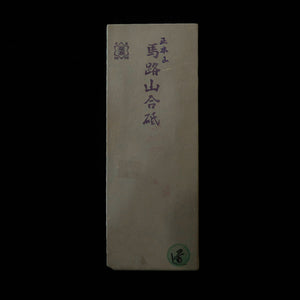 正本山
馬路山合砥